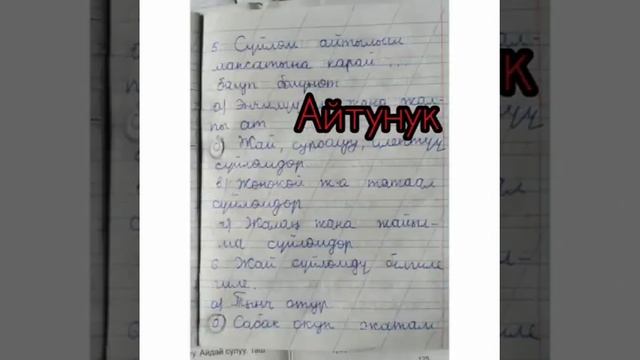 5. Сүйлөм айтылыш
максатына карай ...
болуп бөлүнөт
а) Энчилүү жана жал-
пы ат
б) Жай, суроолуу, илептүү
сүйлөмдөр
в) Жөнөкөй ж-а татаал
сүйлөмдөр
г) Жалаң жана жайыл-
ма сүйлөмдөр
6 Жай сүйлөмдү белгиле
гиле.
а) Тынч отур
б) Сабак окуп жатам
Айтунук
Айдай сулуу. Таш
125